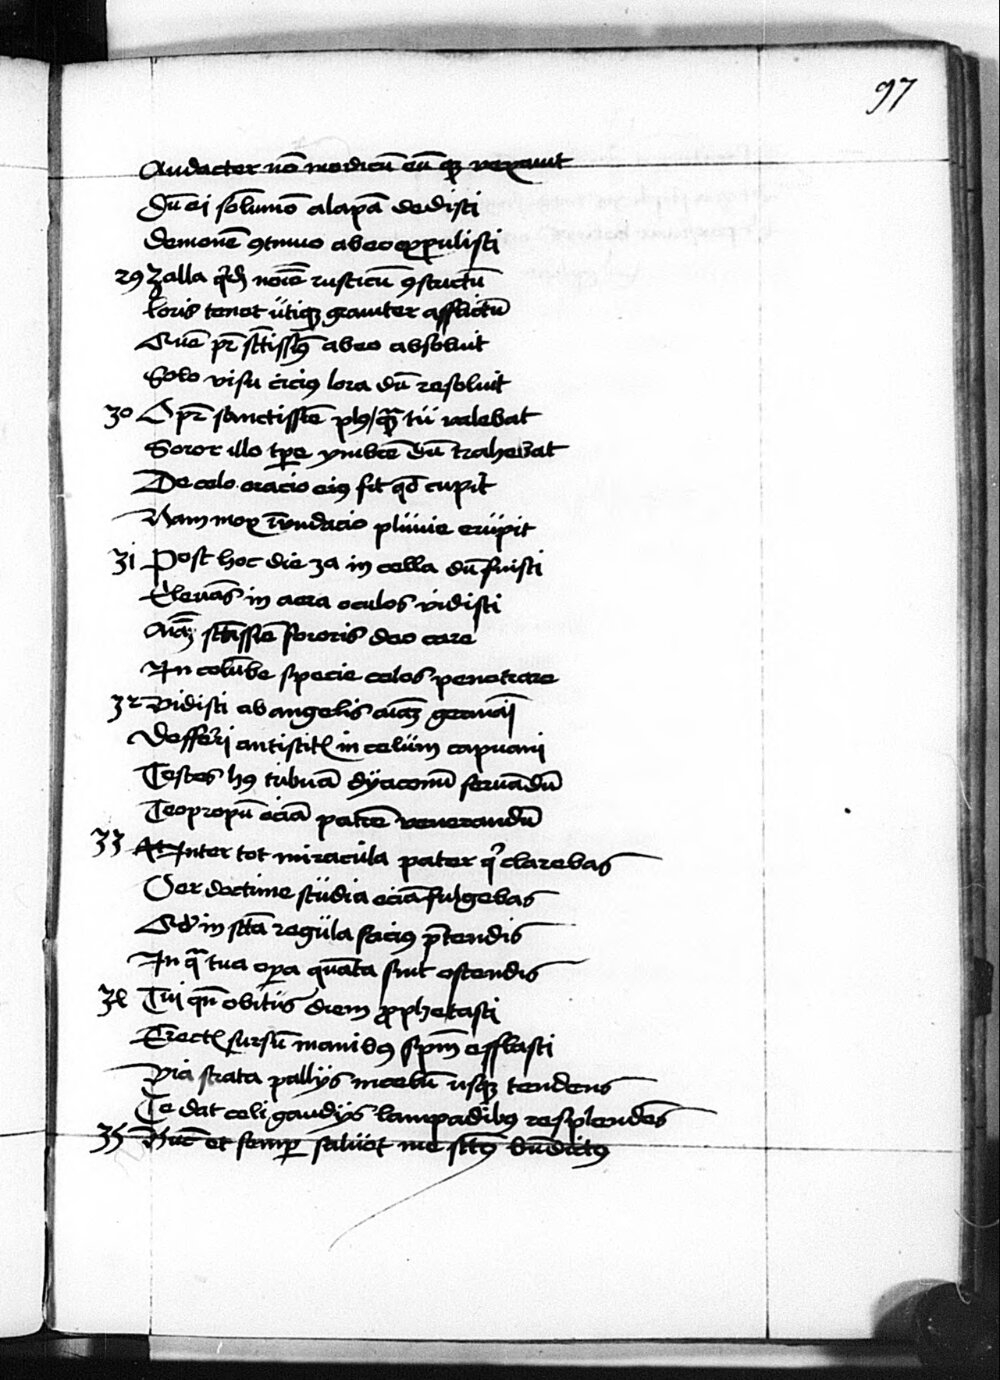 97
Audacter nō modicū eū q̄ꝫ vexauit
Dū ei solūmō alapā dedisti
Demonē ꝯtinuo ab eo expulisti
29 Zalla q̄dā noīe rusticū ꝯstrictū
Loris tenet utiqꝫ grauiter afflictū
Quē pr̄ sctissimꝰ ab eo absoluit
Solo visu ciciꝰ lora dū resoluit
30 O pr̄ sanctissīe plꝰ q̄ꝫ tu valebat
Soror illo tp̄e ymbrē dū trahebat
De celo oracio eiꝰ fit qd̄ cupit
Nam mox īundacio pluuie erupit
31 Post hoc die 3a in cella dū fuisti
Eleuās in aera oculos vidisti
Aīaꝫ sctissīe sororis deo care
In colūbe specie celos penetrare
32 Vidisti ab angelis aīaꝫ germani
Defferri antistitꝭ in celum capuani
Testes hꝰ tribuā dyaconū seruādū
Teopropū eciā patrē venerandū
33 At Inter tot miracula pater q̇ clarebas
Per doctrine studia eciā fulgebas
Qd̓ in sctā regula saciꝰ p̄tendis
In q̄ tua oꝑa quāta sint ostendis
34 Tui qn̄ obitus diem ꝓphetasti
Erectꝭ sursū manibꝰ spm̄ efflasti
Via strata pallijs in celū usqꝫ tendens
Te dat celi gaudijs lampadibꝰ resplendēs
35 Nūc et semꝑ saluet me sctꝰ bn̄dictꝰ